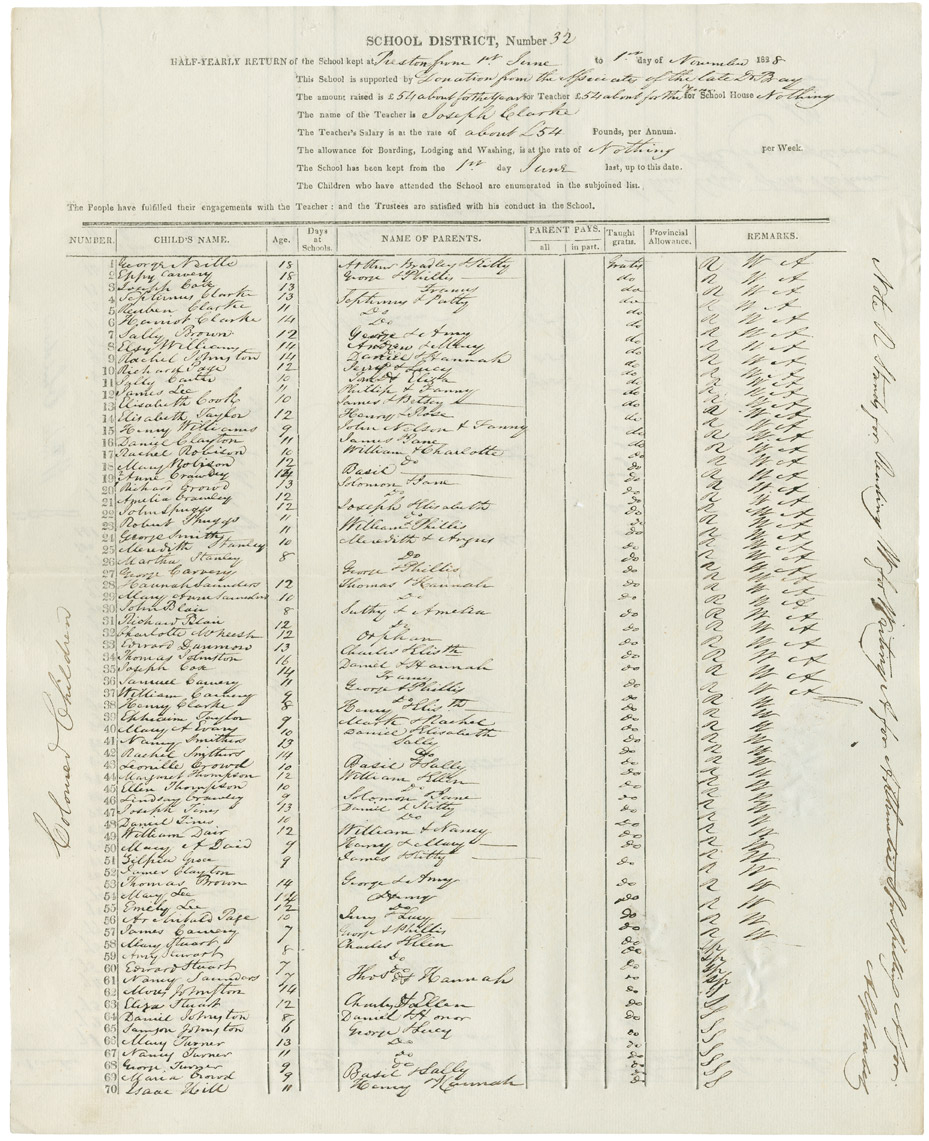 SCHOOL DISTRICT, Number 32
HALF-YEARLY RETURN of the School kept at Preston from 1st June to 1st day of November 1838
This School is supported by Donation from the Associates of the late Dr Bray
The amount raised is £54 about for the Year for Teacher £54 about for the Year for School House Nothing
The name of the Teacher is Joseph Clarke
The Teacher's Salary is at the rate of about £54 Pounds, per Annum.
The allowance for Boarding, Lodging and Washing, is at the rate of Nothing per Week.
The School has been kept from the 1st day June last, up to this date.
The Children who have attended the School are enumerated in the subjoined list.
The People have fulfilled their engagements with the Teacher: and the Trustees are satisfied with his conduct in the School.
NUMBER. CHILD'S NAME. Age. Days at Schools. NAME OF PARENTS. PARENT PAYS. all in part. Taught gratis. Provincial Allowance. REMARKS.
1 George 18 Arthur Bradley & Kitty Gratis R W A
2 Eppy Carvery 18 George & Phillis do R W A
3 Joseph Cox 13 Franny do R W A
4 Septemus Clarke 13 Septemus & Patty do R W A
5 Reuben Clarke 11 Do do R W A
6 Clarke 14 Do do R W A
7 Sally Brown 12 George & Amy do R W A
8 Elsy Williams 14 Andrew & Mary do R W A
9 Rachel Johnston 14 Daniel & Hannah do R W A
10 Richard Page 12 Jerry & Lucy do R W A
11 Sally Carter 10 Eliza do R W A
12 James Lee 11 Phillip & Fanny do R W A
13 Elisabeth Cook 10 James & Betsey do R W A
14 Elisabeth Taylor 12 Henry & Rose do R W A
15 Henry Williams 9 John Nelson & Fanny do R W A
16 Daniel Clayton 11 James & Jane do R W A
17 Rachel Robison 10 William & Charlotte do R W A
18 Mary Robison 12 Do do R W A
19 Anne Crawley 14 Basil do R W A
20 Richard Crowd 13 Solomon & Jane do R W A
21 Amelia Crawley 12 Do do R W A
22 John Spriggs 12 Joseph & Elisabeth do R W A
23 Robert 11 Do do R W A
24 George Smithy 11 William & Phillis do R W A
25 Meredith Stanley 10 Meredith & do R W A
26 Martha Stanley 8 Do do R W A
27 George Carvery George & Phillis do R W A
28 Hannah Saunders 12 Thomas & Hannah do R W A
29 Mary Anne Saunders 10 Do do R W A
30 John Blair 8 Suthy & Amelia do R W A
31 Richard Blair 12 Do do R W A
32 Charlotte 12 Orphan do R W A
33 Edward Dunmow 13 Charles & Elisth do R W A
34 Thomas Johnston 16 Daniel & Hannah do R W A
35 Joseph Cox 14 Franny do R W A
36 Samuel Carvery 11 George & Phillis do R W A
37 William Carvery 9 Do do R W A
38 Henry Clarke 8 Henry & Elisth do R W
39 Ephraim Taylor 9 Mark & Rachel do R W
40 Mary A 10 Daniel & Elisabeth do R W
41 Nancy Smithers 13 Sally do R W
42 Rachel Smithers 14 Do do R W
43 Leonille Crowd 10 Basil & Sally do R W
44 Margaret Thompson 12 William & Ellen do R W
45 Ellen Thompson 10 Do do R W
46 Lindsay Crawley 9 Solomon & Jane do R W
47 Joseph Tines 13 Daniel & Kitty do R W
48 Daniel Tines 10 Do do R W
49 William Dair 12 William & Nancy do R W
50 Mary A 9 Henry & Mary do R W
51 Gilpin 9 James & Kitty do R W
52 James Clayton R W
53 Thomas Brown 14 George & Amy do R W
54 Mary Lee 14 do R W
55 Emely Lee 12 Do do R W
56 Archibald Page 10 Jerry & Lucy do R W
57 James Carvery 7 George & Phillis do R W
58 Mary Stuart Charles & Ellen do Sp
59 Amy Stuart 8 Do do Sp
60 Edward Stuart 7 Do do Sp
61 Nancy Saunders 7 Thos & Hannah do Sp
62 Moses Johnston 14 Do do S
63 Eliza Stuart 12 Charles & Ellen do S
64 Daniel Johnston 8 Daniel & Honor do S
65 Samson Johnston 6 George & Lucy do S
66 Mary Turner 13 Do do S
67 Nancy Turner 11 do do S
68 George Turner 9 Do do S
69 Maria Crowd 9 Basil & Sally do S
70 Isaac Hill 11 Henry & Hannah do S
Coloured Children
Note R Stands for Reading W for Writing A for Arithmetic Sp for Spelling S for